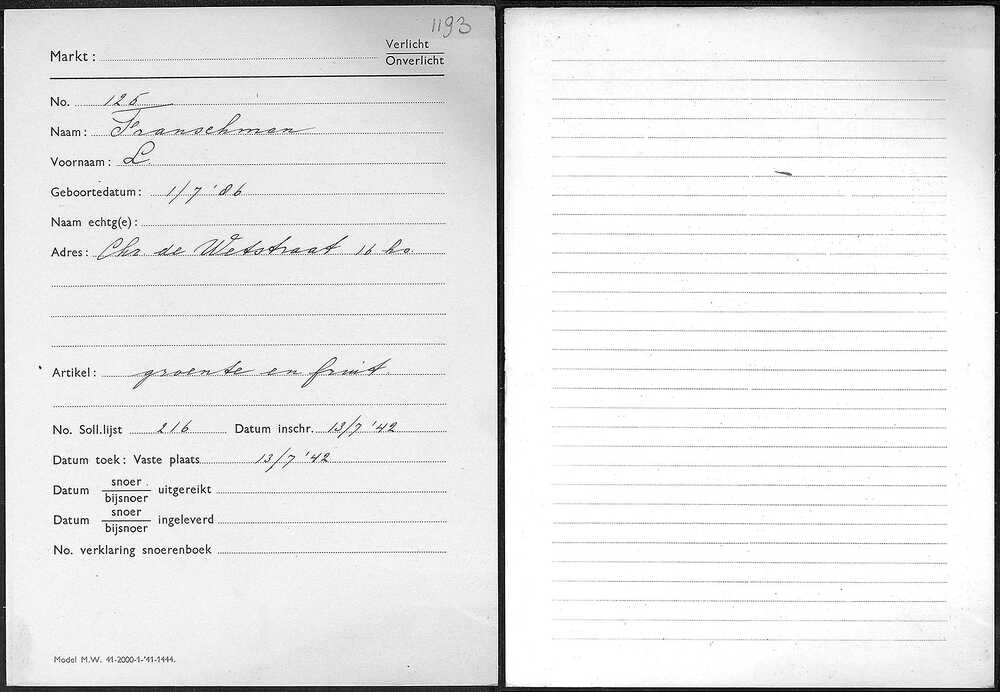 1193
Markt :
Verlicht
Onverlicht
No. 125
Naam : Franschman
Voornaam : L
Geboortedatum : 1/7 '86
Naam echtg(e) :
Adres : Chr. de Wetstraat 16 hs.
Artikel : groente en fruit
No. Soll.lijst 216 Datum inschr. 13/7 '42
Datum toek : Vaste plaats 13/7 '42
Datum snoer / bijsnoer uitgereikt
Datum snoer / bijsnoer ingeleverd
No. verklaring snoerenboek
Model M.W. 41-2000-1-'41-1444.